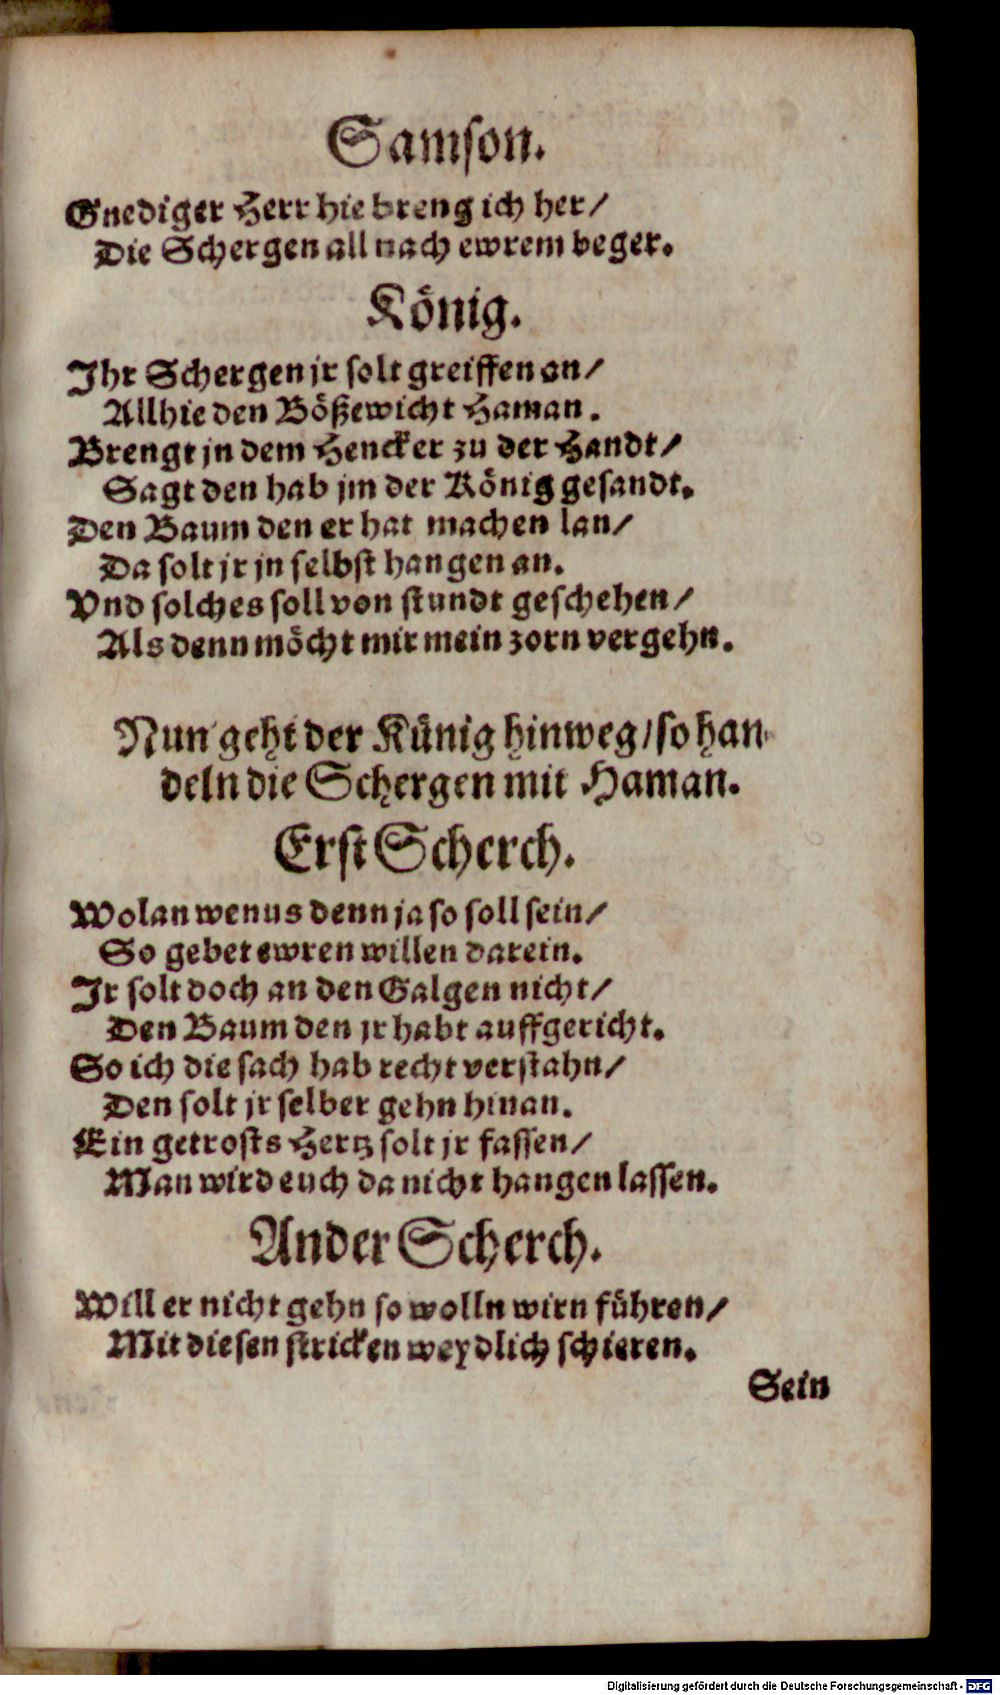 Samson.
Gnediger Herr hie breng ich her/
Die Schergen all nach ewrem beger.
König.
Ihr Schergen jr solt greiffen an/
Allhie den Bößewicht Haman.
Brengt jn dem Hencker zu der Handt/
Sagt den hab jm der König gesandt.
Den Baum den er hat machen lan/
Da solt jr jn selbst hangen an.
Vnd solches soll von stundt geschehen/
Als denn möcht mir mein zorn vergehn.
Nun geht der Künig hinweg/so han-
deln die Schergen mit Haman.
Erst Scherch.
Wolan wenns denn ja so soll sein/
So gebet ewren willen darein.
Jr solt doch an den Galgen nicht/
Den Baum den jr habt auffgericht.
So ich die sach hab recht verstahn/
Den solt jr selber gehn hinan.
Ein getrosts Hertz solt jr fassen/
Man wird euch da nicht hangen lassen.
Ander Scherch.
Will er nicht gehn so wolln wirn führen/
Mit diesen stricken weydlich schieren.
Sein
Digitalisierung gefördert durch die Deutsche Forschungsgemeinschaft - DFG